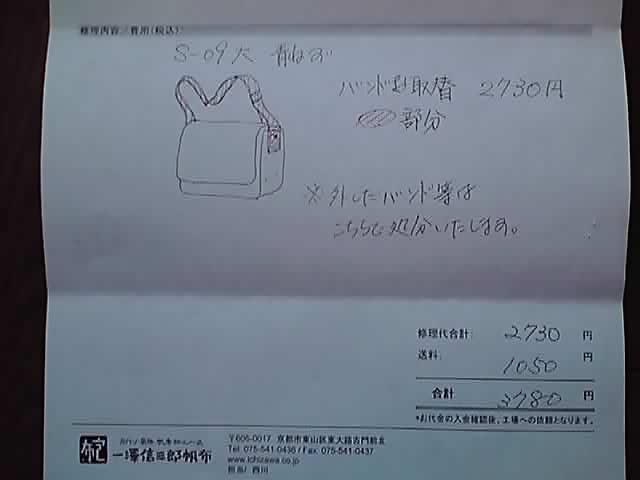 修理内容/費用(税込)
S-09大 青ねず
バンド 取替 2730円
部分
※外したバンド等は
こちらで処分いたします。
修理代合計: 2730 円
送料: 1050 円
合計 3780 円
*お代金の入金確認後、工場への依頼となります。
一澤信三郎帆布
〒605-0017 京都市東山区東大路古門前北
Tel: 075-541-0436 / Fax: 075-541-0437
www.ichizawa.co.jp
担当/ 西川